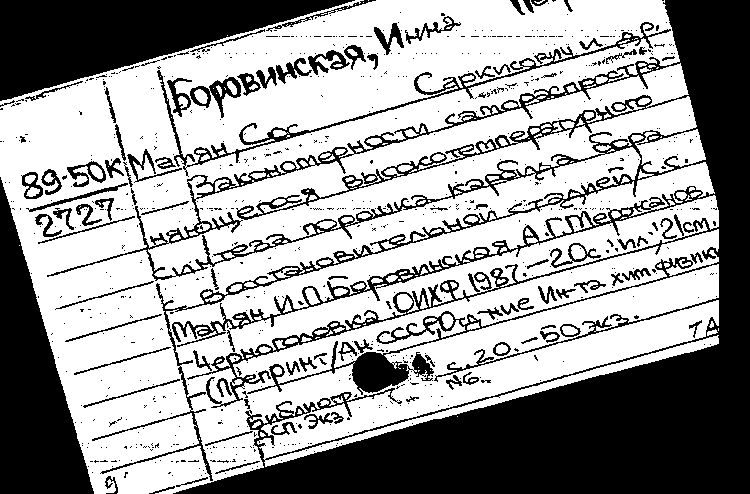 Боровинская, Инна
89-50К
2727
Матян, Сос Саркисович и др.
Закономерности самораспростра-
няющегося высокотемпературного
синтеза порошка карбида бора
с восстановительной стадией/С.С.
Матян, И.П. Боровинская, А.Г. Мержанов.
-Черноголовка: ОИХФ, 1987.-20с.: ил.; 21см.
-(Препринт/Ан СССР, Отд-ние Ин-та хим. физики
Библиогр. с. 20.-50 экз.
дсп. экз. N6.